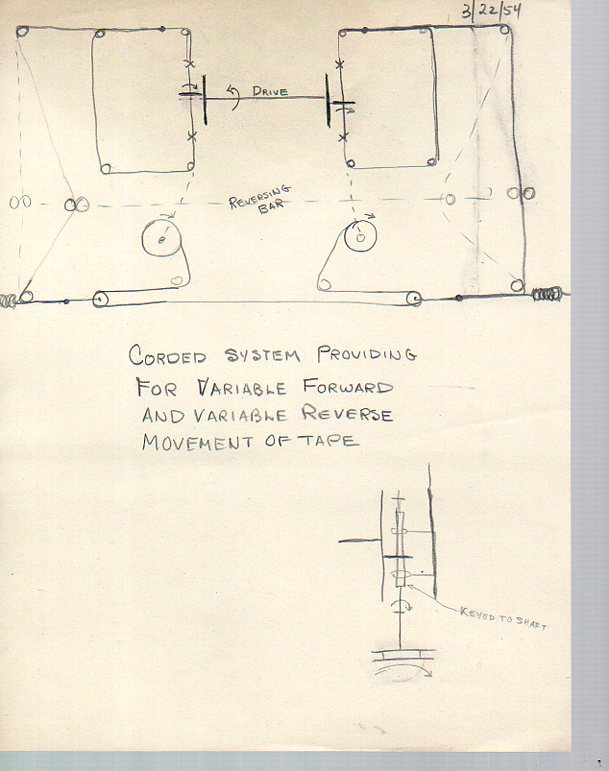 3/22/54
DRIVE
REVERSING
BAR
CORDED SYSTEM PROVIDING
FOR VARIABLE FORWARD
AND VARIABLE REVERSE
MOVEMENT OF TAPE
KEYED TO SHAFT